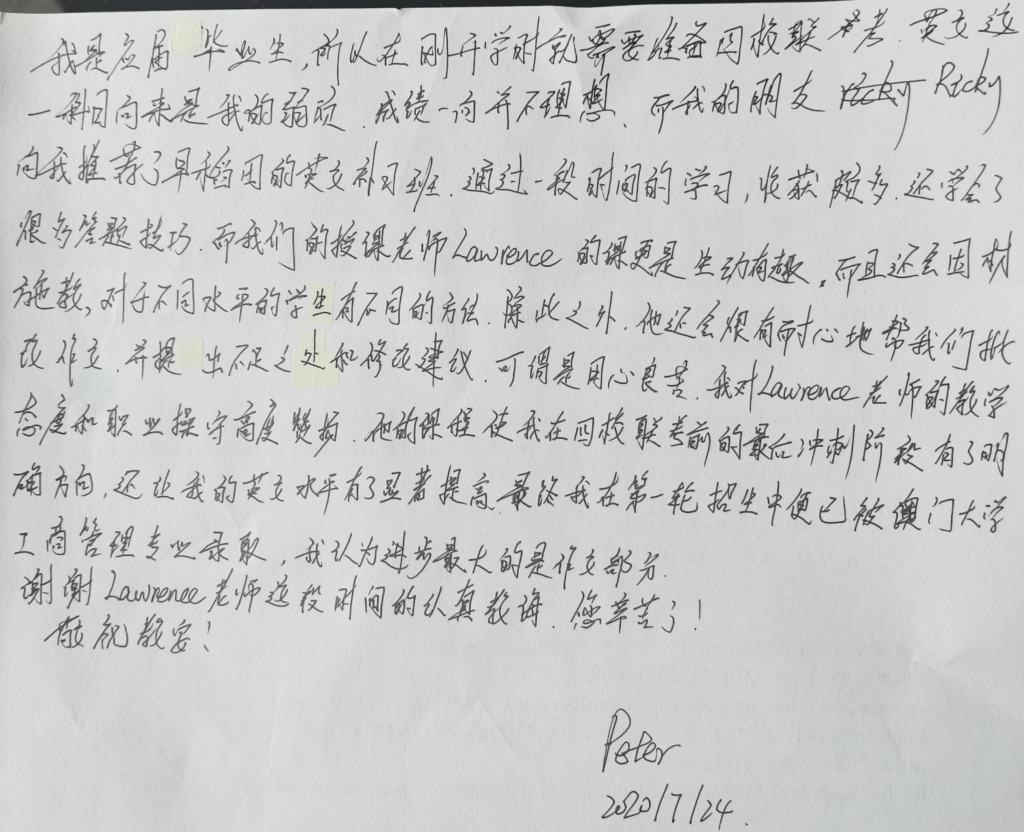 我是应届毕业生,所以在刚开学时就需要准备四校联考.英文这
一科目向来是我的弱项.成绩一向并不理想.而我的朋友 Ricky Ricky
向我推荐了早稻田的英文补习班.通过一段时间的学习,收获颇多.还学会了
很多答题技巧.而我们的授课老师Lawrence的课更是生动有趣.而且还会因材
施教,对于不同水平的学生有不同的方法.除此之外.他还会很有耐心地帮我们批
改作文.并提出不足之处和修改建议.可谓是用心良苦.我对Lawrence老师的教学
态度和职业操守高度赞扬.他的课程使我在四校联考前的最后冲刺阶段有了明
确方向,还让我的英文水平有了显著提高.最终我在第一轮招生中便已被澳门大学
工商管理专业录取,我认为进步最大的是作文部分.
谢谢Lawrence老师这段时间的认真教诲.您辛苦了!
敬祝教安!
Peter
2020/7/24.